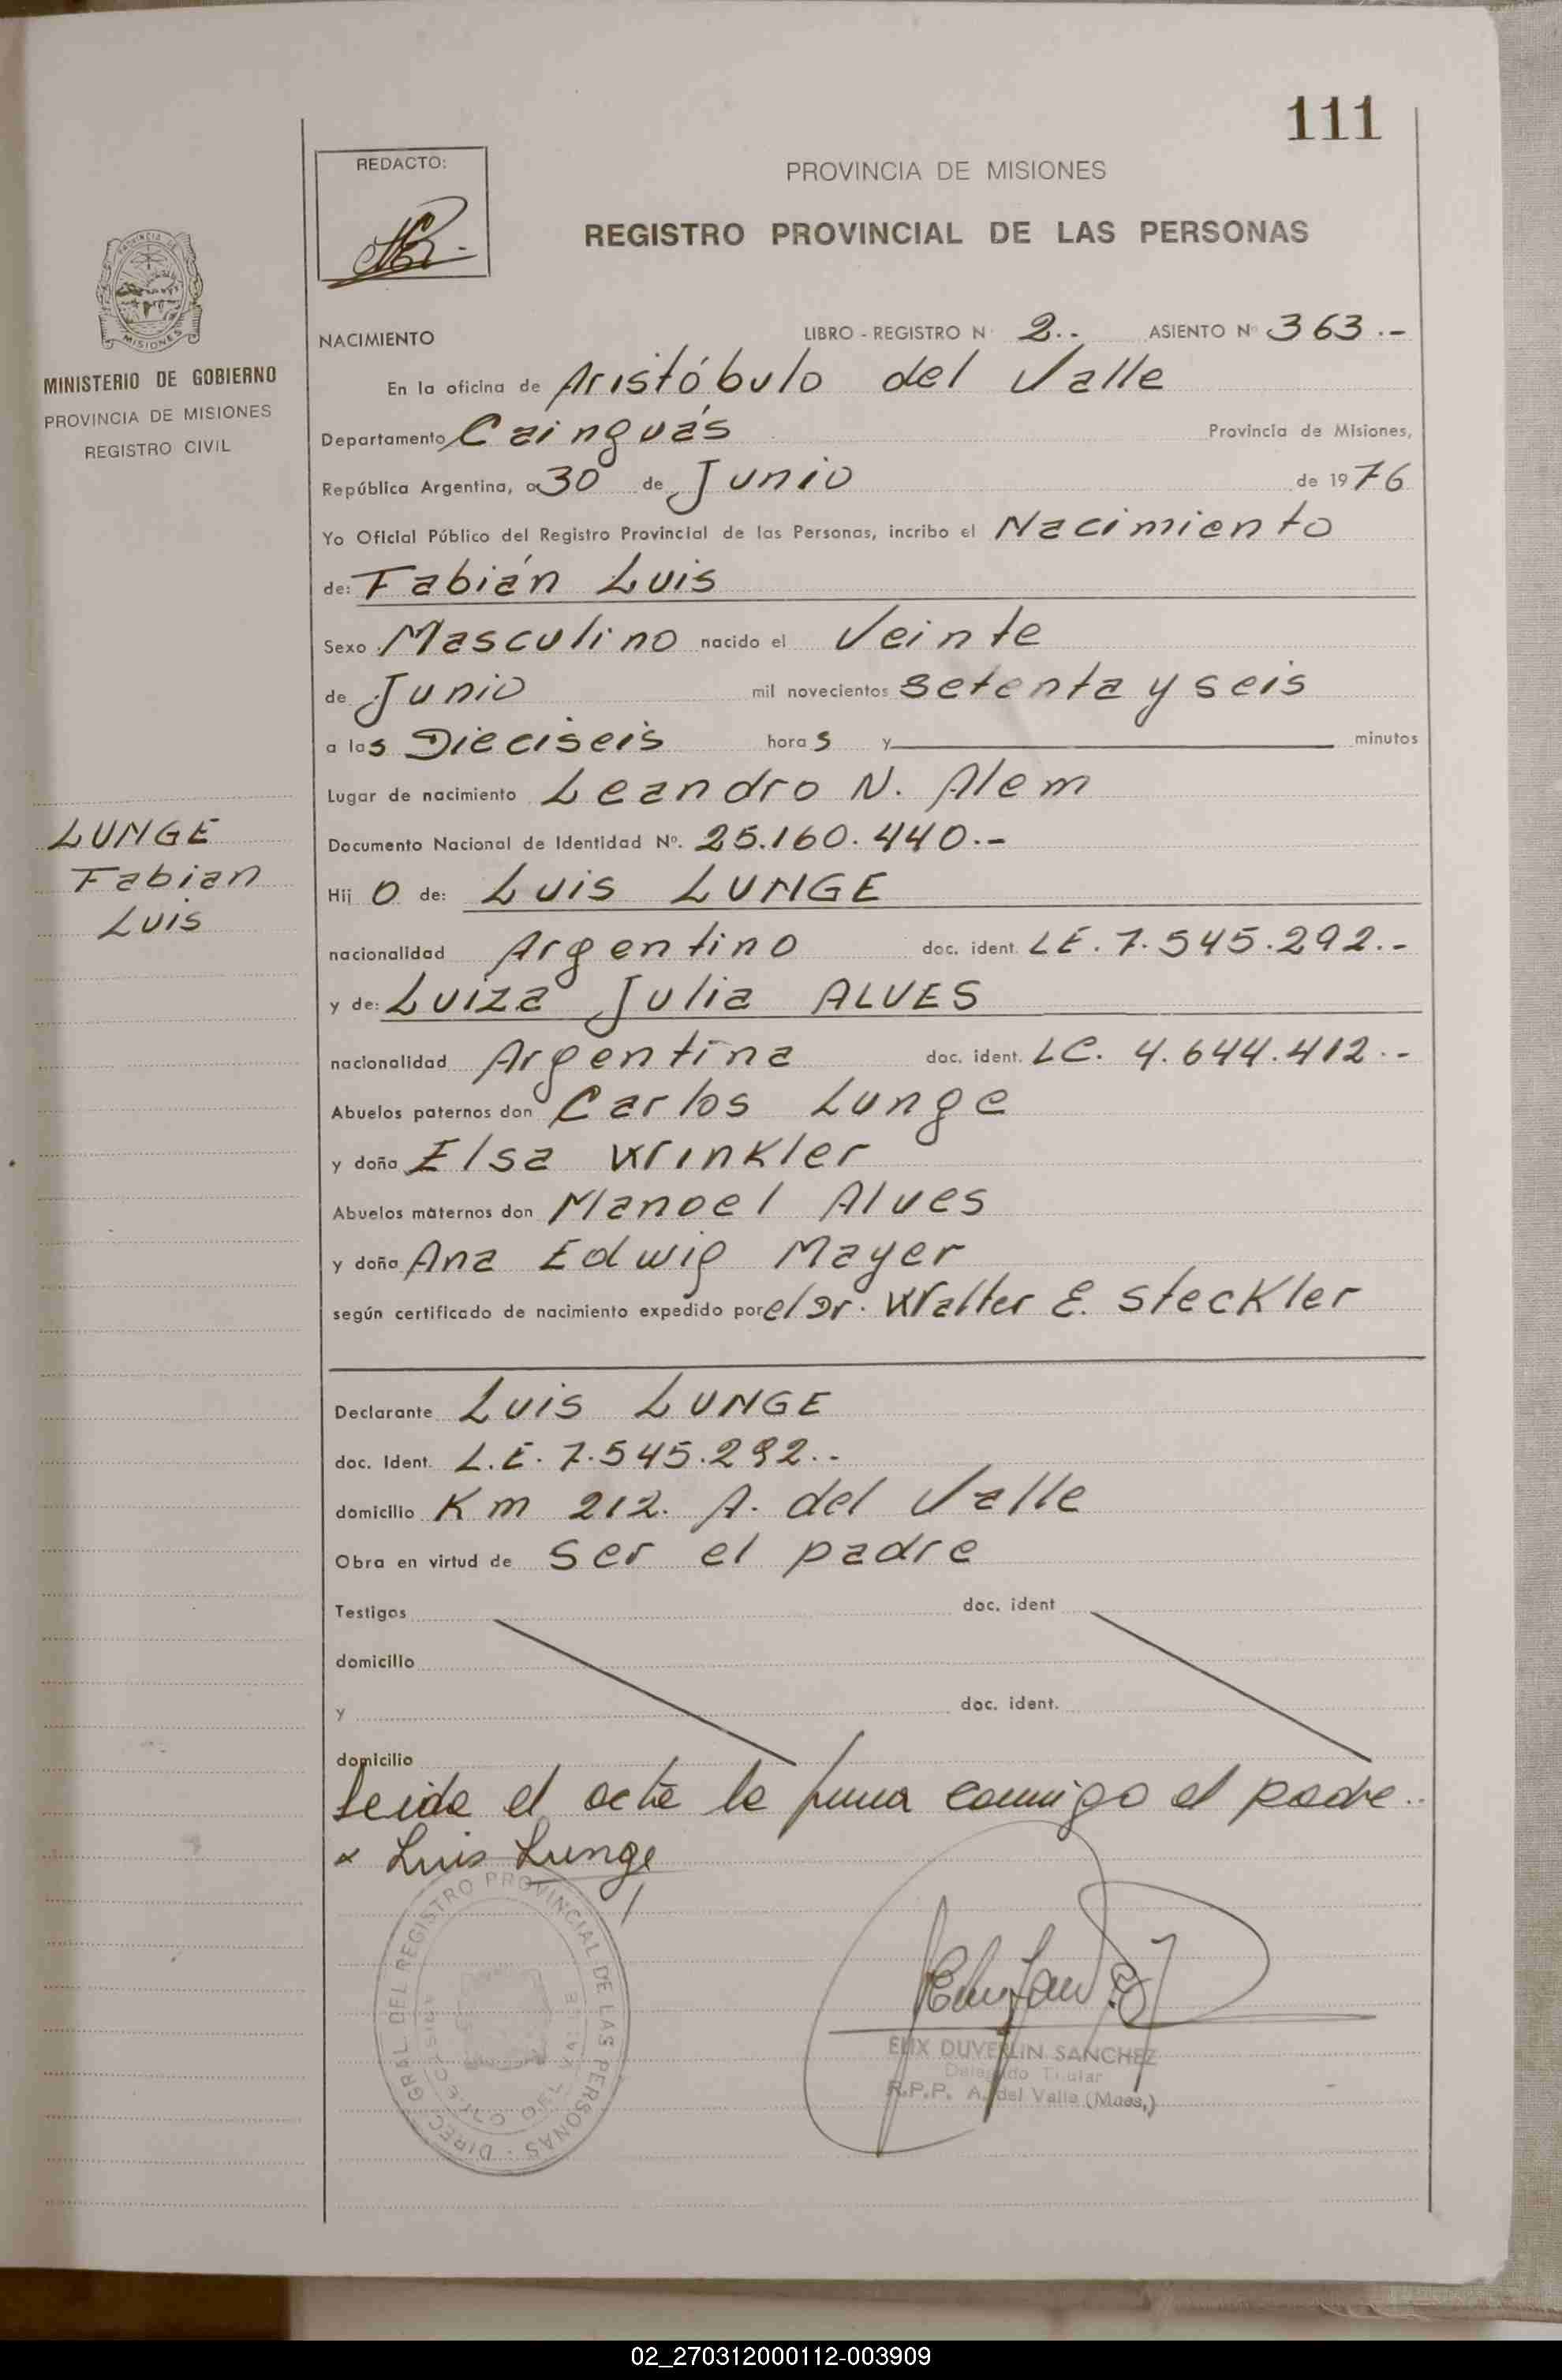 111
REDACTO:
PROVINCIA DE MISIONES
REGISTRO PROVINCIAL DE LAS PERSONAS
MISIONES
MINISTERIO DE GOBIERNO
PROVINCIA DE MISIONES
REGISTRO CIVIL
NACIMIENTO LIBRO - REGISTRO Nº 2.. ASIENTO Nº 363.-
En la oficina de Aristóbulo del Valle
Departamento Cainguás Provincia de Misiones,
República Argentina, a 30 de Junio de 1976
Yo Oficial Público del Registro Provincial de las Personas, incribo el Nacimiento
de: Fabián Luis
Sexo Masculino nacido el Veinte
de Junio mil novecientos setenta y seis
a las Dieciseis horas y minutos
Lugar de nacimiento Leandro N. Alem
LUNGE
Fabian
Luis
Documento Nacional de Identidad Nº. 25.160.440.-
Hijo de: Luis LUNGE
nacionalidad Argentino doc. ident. LE. 7.545.292.-
y de: Luiza Julia ALVES
nacionalidad Argentina doc. ident. LC. 4.644.412.-
Abuelos paternos don Carlos Lunge
y doña Elsa Winkler
Abuelos maternos don Manoel Alves
y doña Ana Edwig Mayer
según certificado de nacimiento expedido por el Dr. Walter E. Steckler
Declarante Luis LUNGE
doc. Ident. L.E. 7.545.292..
domicilio Km 212. A. del Valle
Obra en virtud de ser el padre
Testigos doc. ident
domicilio
y doc. ident.
domicilio
Leida el acta la firma conmigo el padre..
x Luis Lunge
DIREC. GRAL. DEL REGISTRO PROVINCIAL DE LAS PERSONAS
DEL VALLE
ELIX DUVERLIN SANCHEZ
Delegado Titular
R.P.P. A. del Valle (Mnes.)
02_270312000112-003909